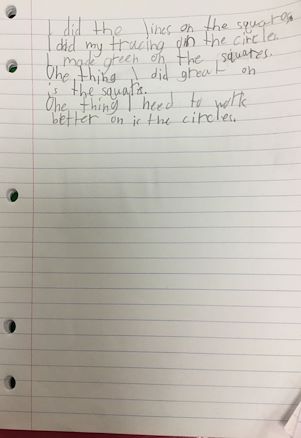 I did the lines on the squares
I did my tracing on the circle.
I made green on the squares.
One thing I did great on
is the square.
One thing I need to work
better on is the circles.